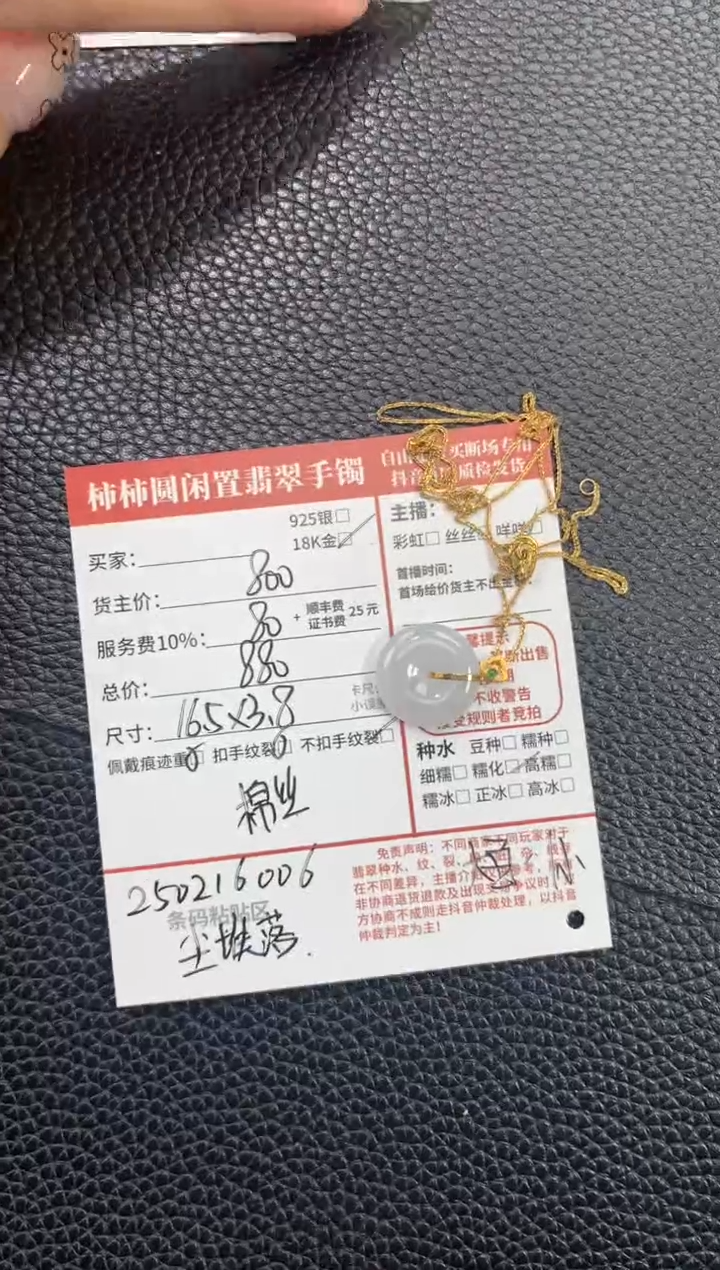 柿柿圆闲置翡翠手镯
自由 买断场专用
抖音 质检发货
925银□
18K金□
买家：
货主价：800
服务费10%：80 + 顺丰费 证书费 25元
总价：880
尺寸：16.5×3.8
卡尺
佩戴痕迹重□ 扣手纹裂□ 不扣手纹裂□
棉丝
250216006
条码粘贴区
主播：
彩虹□ 丝丝 咩咩□
首播时间：
首场给价货主不出
提示
断出售
不收警告
接受规则者竞拍
种水 豆种□ 糯种□
细糯□ 糯化□ 高糯□
糯冰□ 正冰□ 高冰□
免责声明：不同商家不同玩家对于
翡翠种水、纹、裂、
在不同差异，主播介 参考，
非协商退货退款及出现 争议时，
方协商不成则走抖音仲裁处理，以抖音
仲裁判定为主！